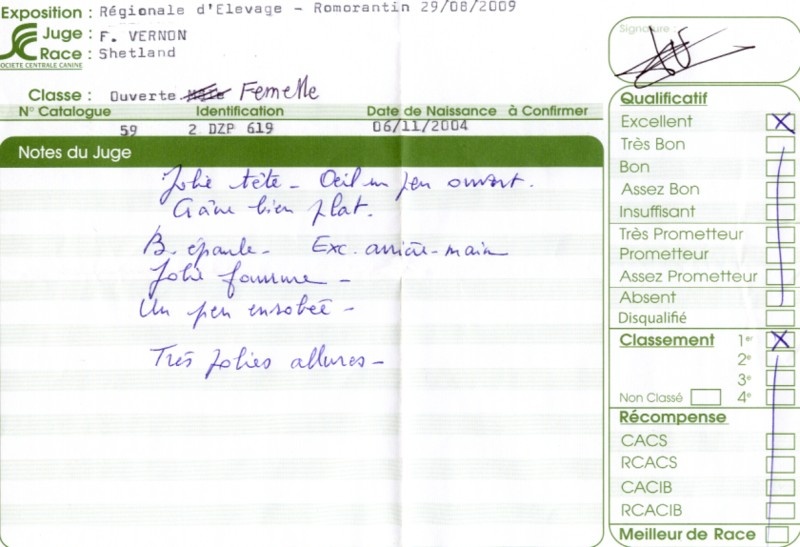 Exposition : Régionale d'Elevage - Romorantin 29/08/2009
Juge : F. VERNON
Race : Shetland
SOCIETE CENTRALE CANINE
Classe : Ouverte Mâle Femelle
N° Catalogue Identification Date de Naissance à Confirmer
59 2 DZP 619 06/11/2004
Notes du Juge
Jolie tête - Oeil un peu ouvert.
Crâne bien plat.
B. épaule - Exc. arrière-main
Jolie fourrure -
Un peu enrobée -
Très jolies allures -
Signature :
Qualificatif
Excellent X
Très Bon
Bon
Assez Bon
Insuffisant
Très Prometteur
Prometteur
Assez Prometteur
Absent
Disqualifié
Classement 1er X
2e
3e
Non Classé 4e
Récompense
CACS
RCACS
CACIB
RCACIB
Meilleur de Race